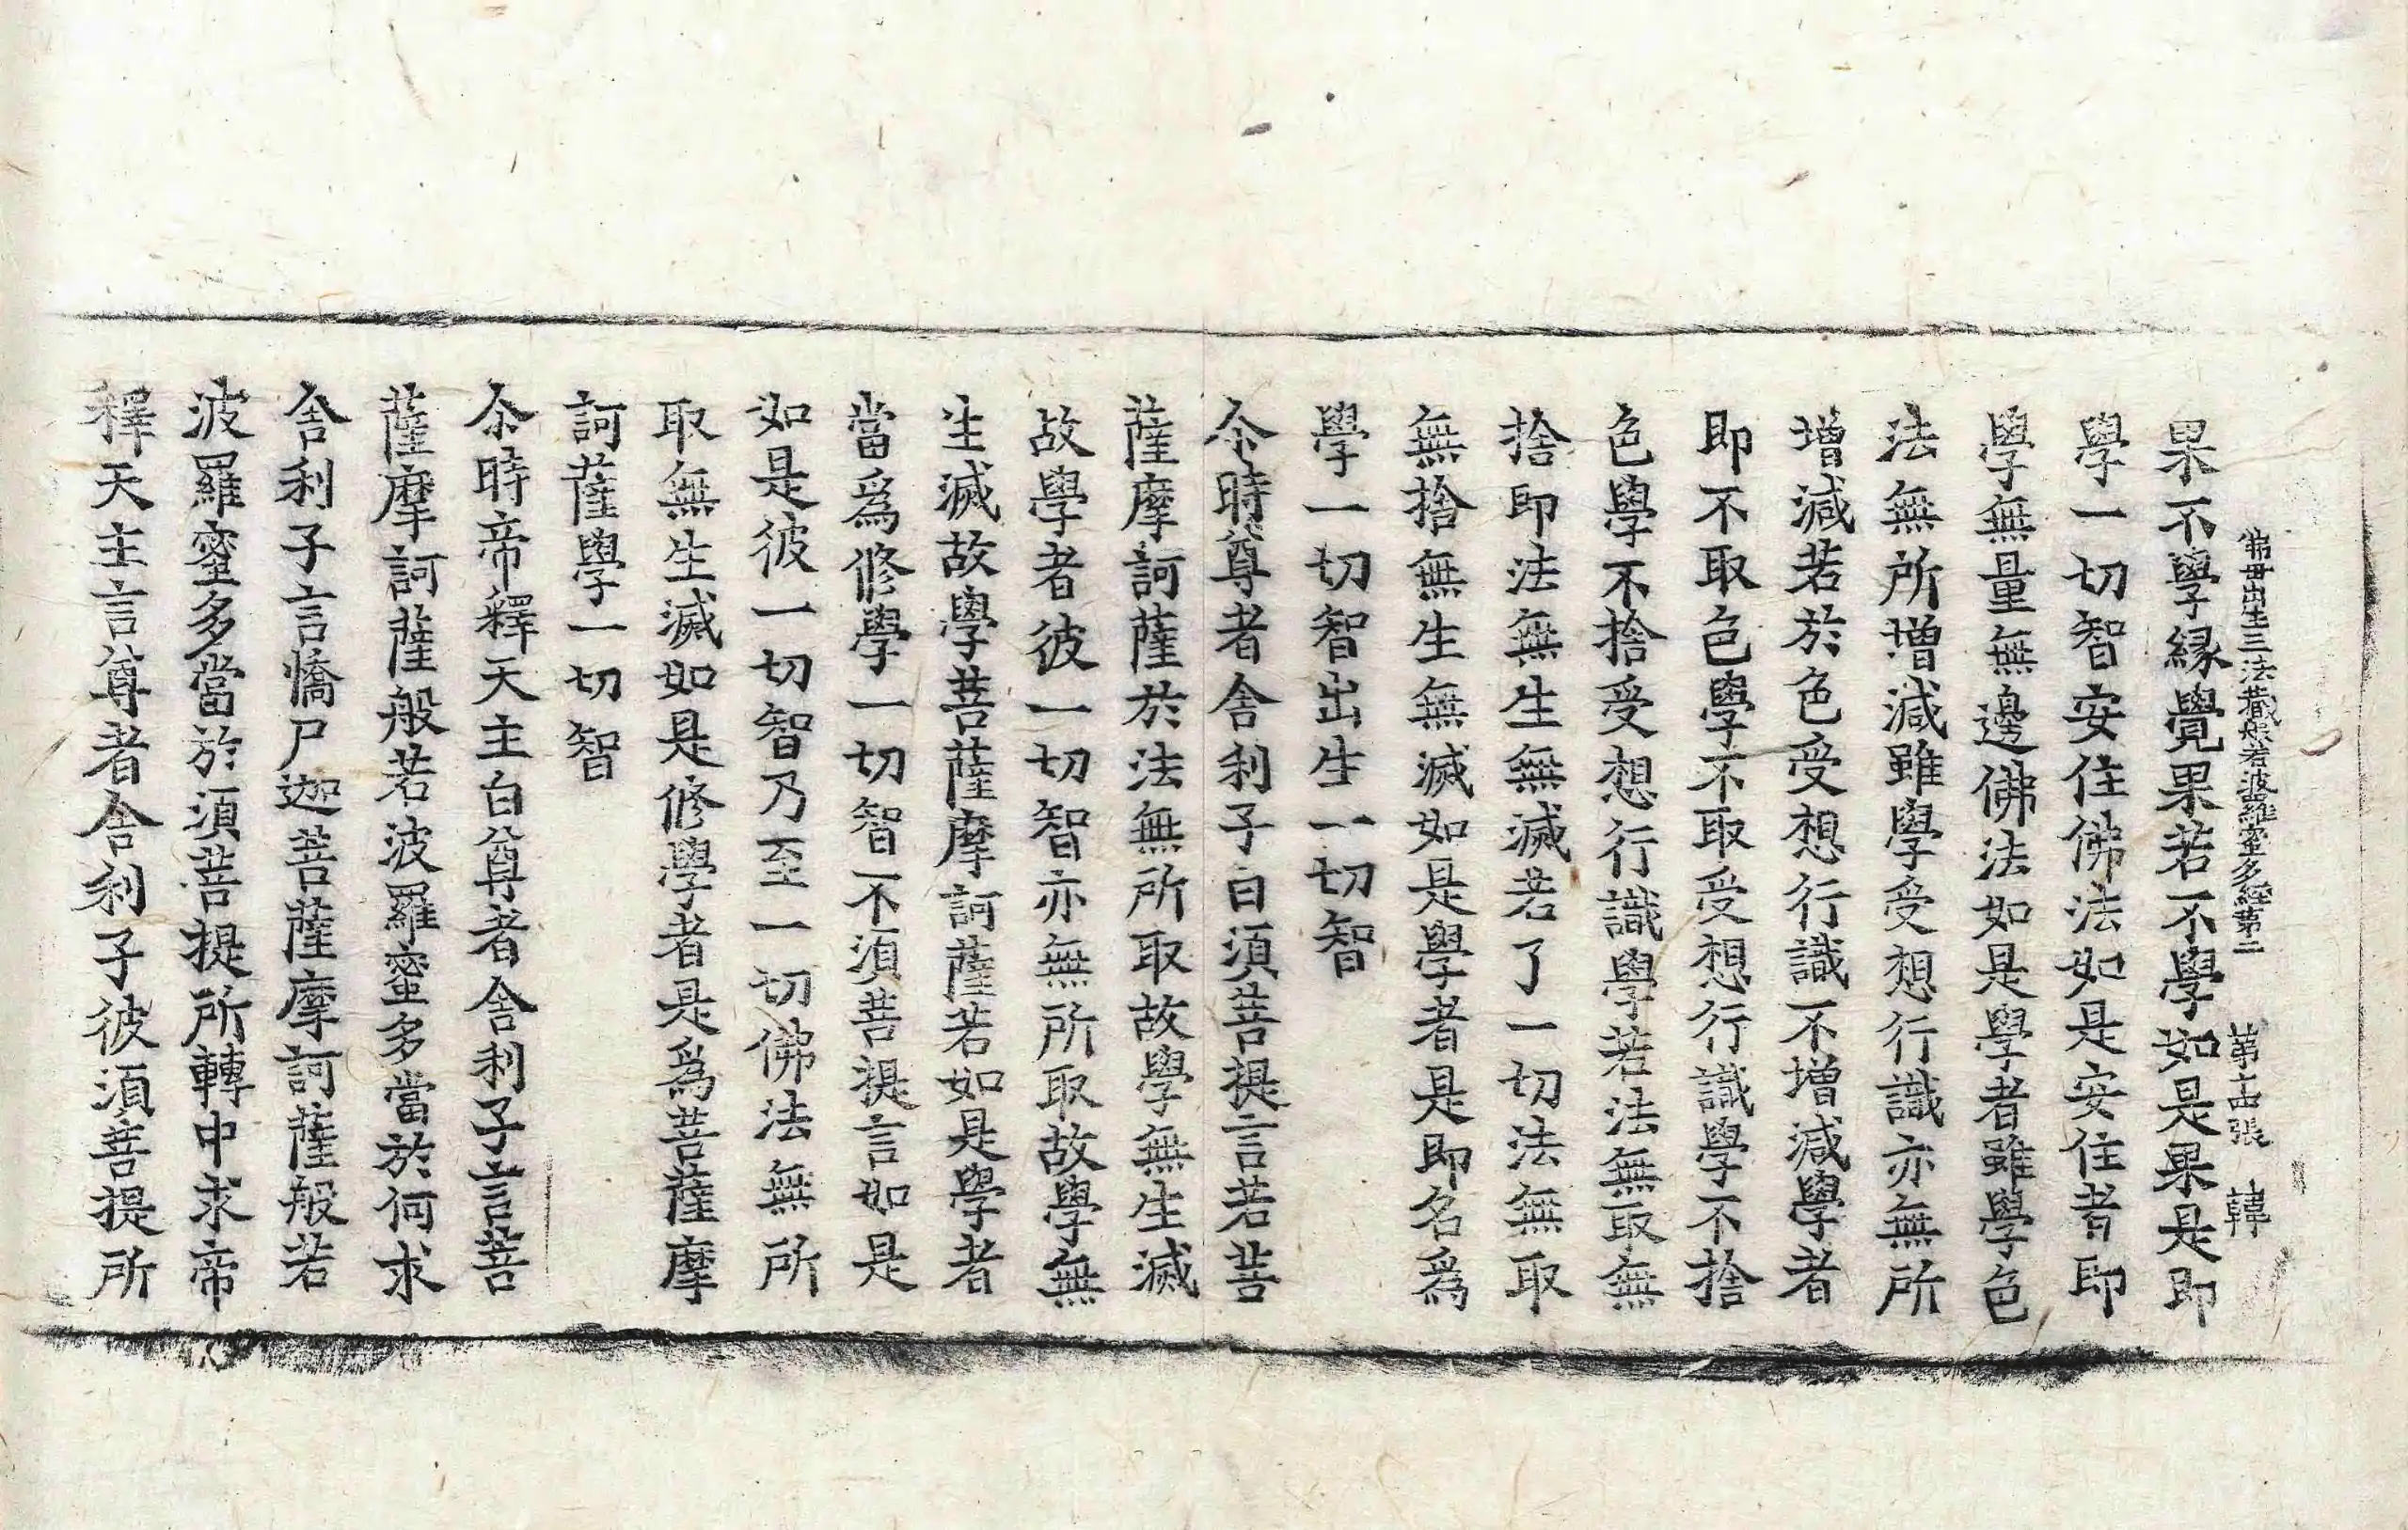 佛母出生三法藏般若波羅蜜多經第二 第十四張 韓
果不學緣覺果若不學如是果是即
學一切智安住佛法如是安住者即
學無量無邊佛法如是學者雖學色
法無所增減雖學受想行識亦無所
增減若於色受想行識不增減學者
即不取色學不取受想行識學不捨
色學不捨受想行識學若法無取無
捨即法無生無滅若了一切法無取
無捨無生無滅如是學者是即名爲
學一切智出生一切智
尒時尊者舍利子白須菩提言若菩
薩摩訶薩於法無所取故學無生滅
故學者彼一切智亦無所取故學無
生滅故學菩薩摩訶薩若如是學者
當爲修學一切智不須菩提言如是
如是彼一切智乃至一切佛法無所
取無生滅如是修學者是爲菩薩摩
訶薩學一切智
尒時帝釋天主白尊者舍利子言菩
薩摩訶薩般若波羅蜜多當於何求
舍利子言憍尸迦菩薩摩訶薩般若
波羅蜜多當於須菩提所轉中求帝
釋天主言尊者舍利子彼須菩提所